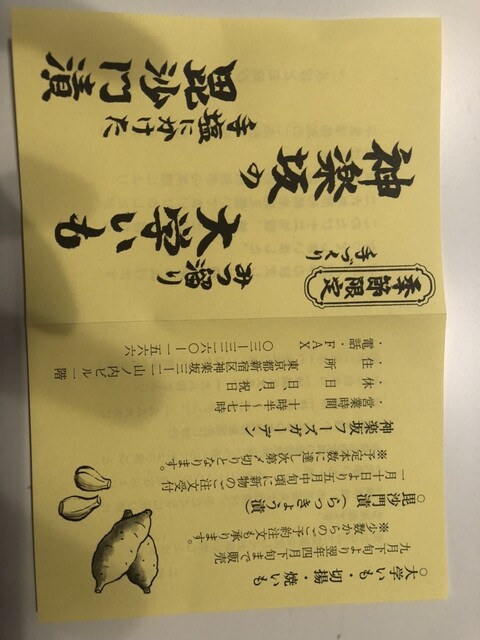 ○大学いも・切揚・焼いも
九月下旬より翌年四月下旬まで販売
※少数からのご予約注文も承ります。
○毘沙門漬(らっきょう漬)
一月十日より五月中旬頃に新物のご注文受付
※予定本数に達し次第〆切りとなります。
神楽坂フーズガーデン
・営業時間 十時半～十七時
・休日 日、月、祝日
・住所 東京都新宿区神楽坂三ー二ー山ノ内ビル一階
・電話・FAX 〇三ー三二六〇ー一五六六
季節限定
手づくり
みつ溜り
大学いも
神楽坂の
手塩にかけた
毘沙門漬